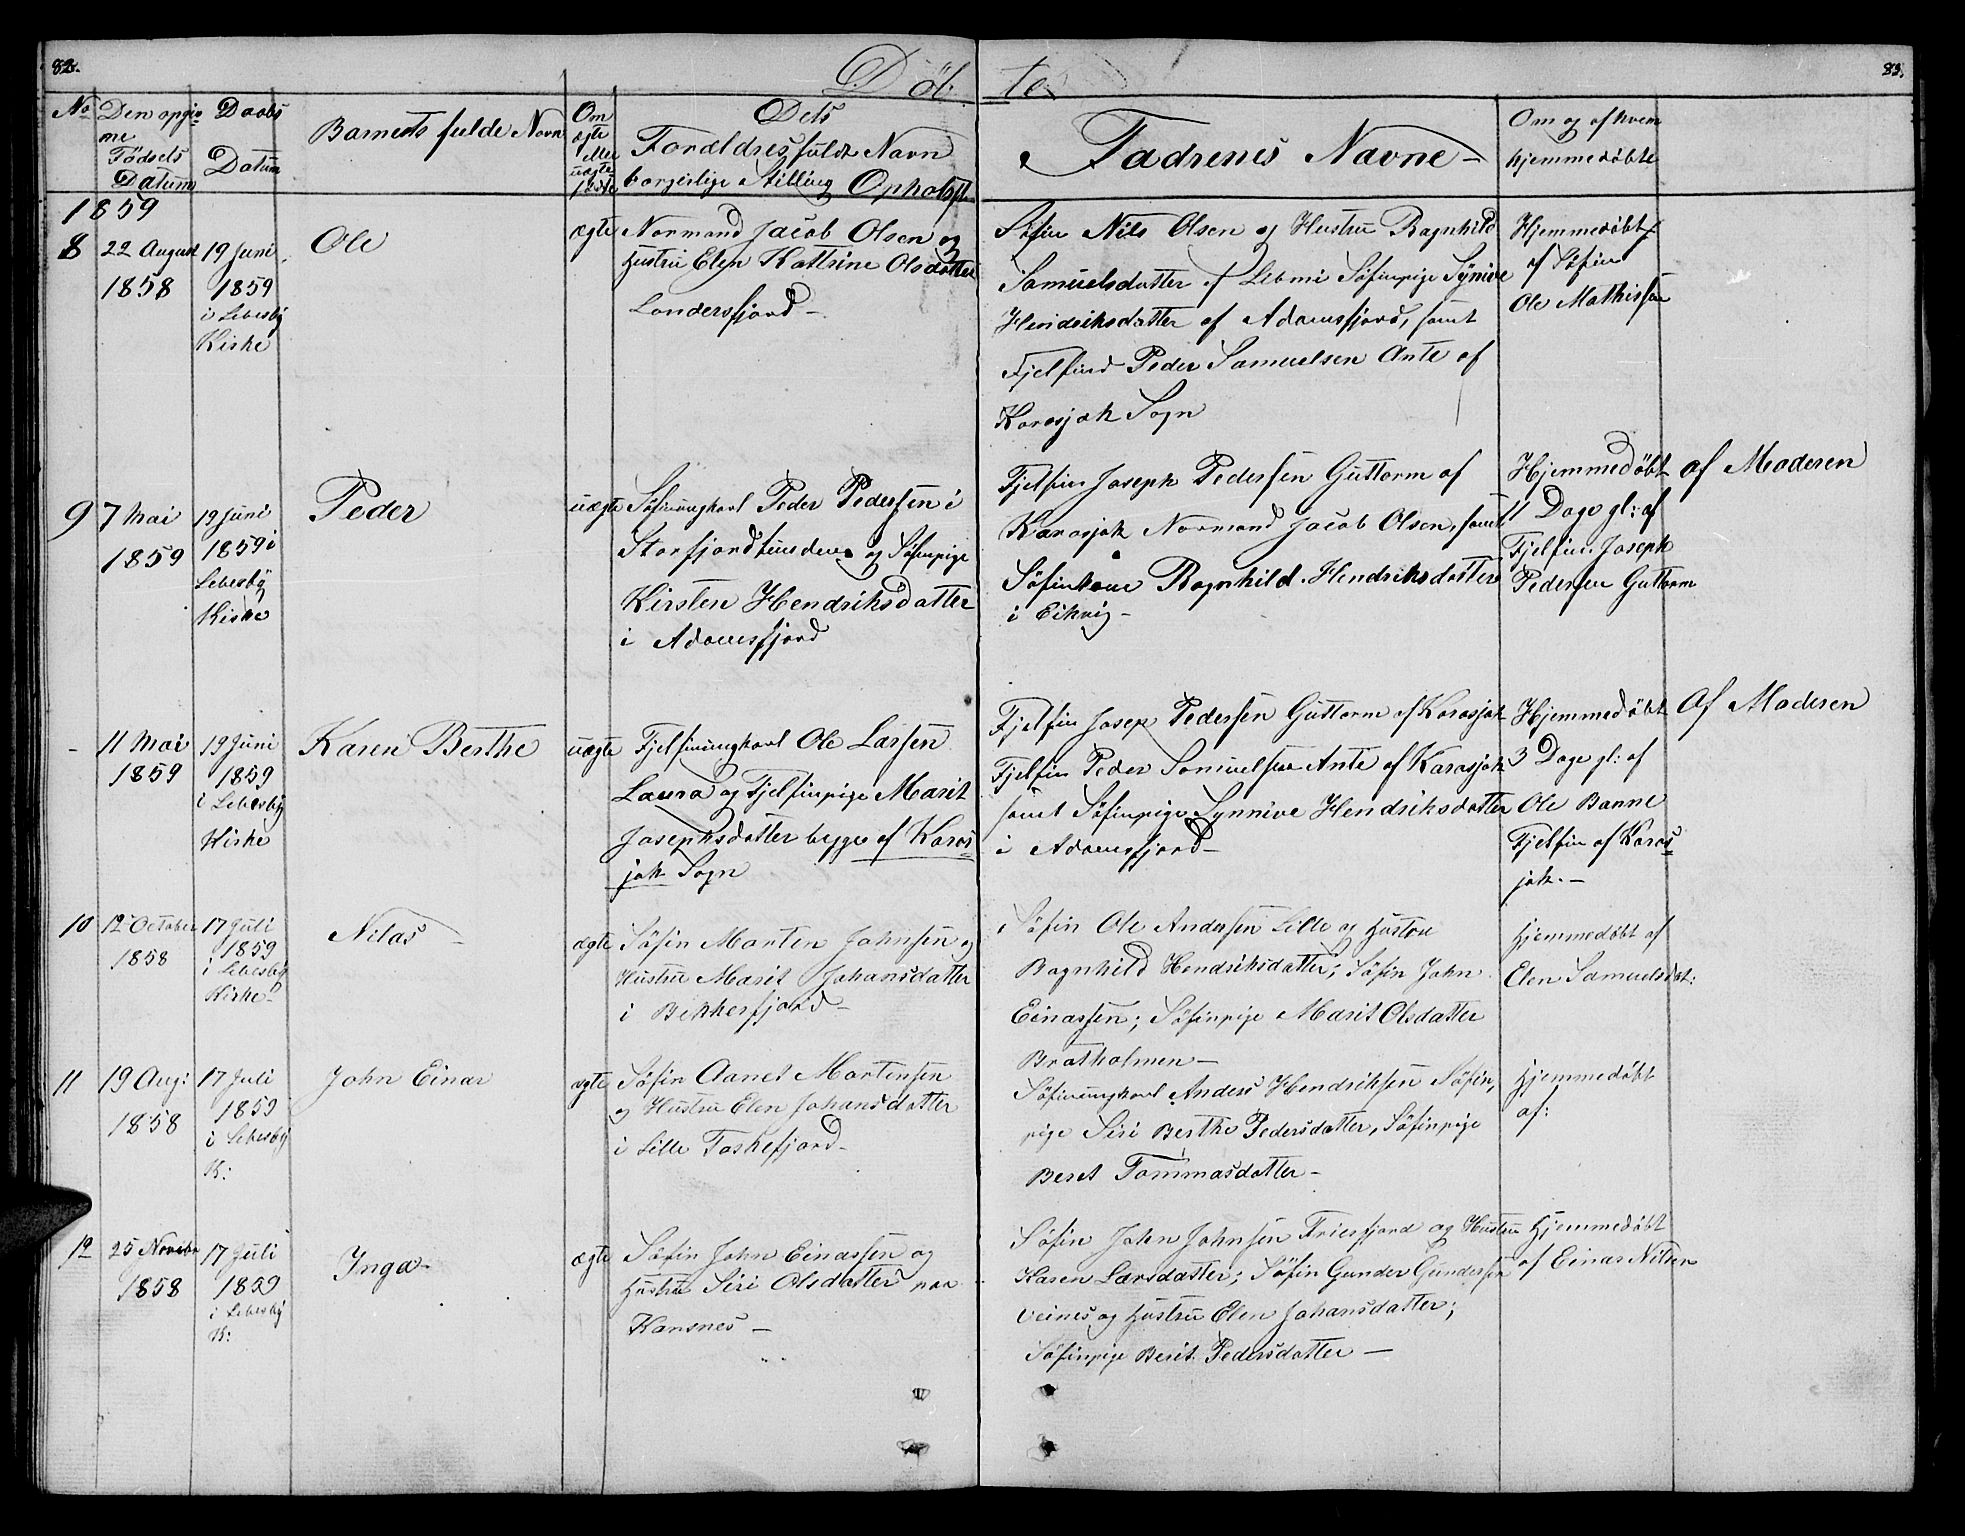 82.
Döb-
te
83.
No
Den opgiv-
ne
Fødsels
Datum
Daabs
Datum
Barnets fulde Navn
Om
ægte
eller
uægte
fødte
Dets
Forældres fulde Navn
borgerlige Stilling Opholdst
Fadrenes Navne -
Om og af hvem
hjemmedøbte
1859
8
22 August
1858
19 Juni
1859
i Lebesby
Kirke
Ole
ægte
Normand Jacob Olsen og
Hustru Elen Kattrine Olsdatter
Landersfjord -
Søfin Nils Olsen og Hustru Ragnhild
Samuelsdatter af Lebmi Søfinpige Synive
Hendriksdatter af Adamsfjord, samt
Fjelfind Peder Samuelsen Ante af
Karasjok Sogn
Hjemmedøbt
af Søfin
Ole Mathissen
9
7 Mai
1859
19 Juni
1859 i
Lebesby
Kirke
Peder
uægte
Søfinungkarl Peder Pedersen i
Storfjordbunden og Søfinpige
Kirsten Hendriksdatter
i Adamsfjord
Fjelfin Joseph Pedersen Guttorm af
Karasjok Normand Jacob Olsen, samt
Søfinkone Ragnhild Hendriksdatter
i Eikvig -
Hjemmedøbt af Moderen
11 Dage gl: af
Fjelfin Joseph
Pedersen Guttorm
-
11 Mai
1859
19 Juni
1859
i Lebesby
Kirke
Karen Berthe
uægte
Fjelfinungkarl Ole Larsen
Laura og Fjelfinpige Marit
Josephsdatter begge af Karas=
jok Sogn
Fjelfin Josep Pedersen Guttorm af Karasjok
Fjelfin Peder Samuelsen Ante af Karasjok
samt Søfinpige Synnive Hendriksdatter
i Adamsfjord -
Hjemmedøbt Af Moderen
3 Dage gl: af
Ole Banne
Fjelfin af Karas=
jok. -
10
12 October
1858
17 Juli
1859
i Lebesby
Kirke -
Nilas
ægte
Søfin Morten Johnsen og
Hustru Marit Johansdatter
i Bekkerfjord -
Søfin Ole Andersen Lille og Hustru
Ragnhild Hendriksdatter; Søfin John
Einassen; Søfinpige Marit Olsdatter
Bratholmen -
hjemmedøbt af
Elen Samuelsdat:
11
19 Aug:
1858
17 Juli
1859
i Lebesby
K:
John Einar
ægte
Søfin Aanet Mortensen
og Hustru Elen Johansdatter
i Lille Taskefjord -
Søfinungkarl Anders Hendriksen Søfin,
pige Siri Berthe Pedersdatter, Søfinpige
Beret Tommasdatter -
hjemmedøbt
af:
12
25 Novebr
1858
17 Juli
1859
i Lebesby
K:
Inga
ægte
Søfin John Einassen og
Hustru Siri Olsdatter paa
Kansnes -
Søfin John Johnsen Friesfjord og Hustru
Karen Larsdatter; Søfin Gunder Gundersen
Veines og Hustru Elen Johansdatter;
Søfinpige Berit Pedersdatter -
Hjemmedøbt
af Einar Nilsen